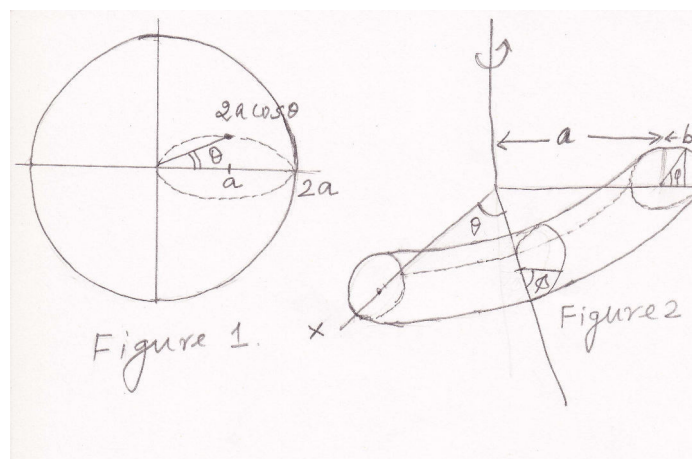 2a cosθ
θ
a
2a
Figure 1.
a
b
φ
θ
φ
x
Figure 2